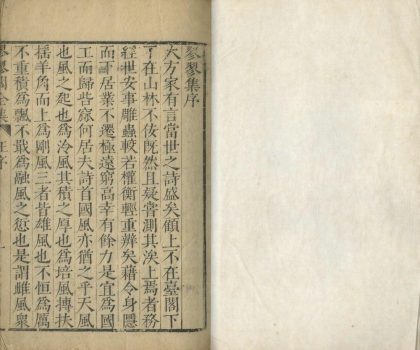 蓼蓼集序
大方家有言當世之詩盛矣顧上不在臺閣下
不在山林不佞既然且疑嘗測其涘上焉者務
經世安事雕蟲較若權衡輕重辨矣藉令身隱
而居業不遷極遠窮高幸有餘力是宜為國
工而歸咎窾何居夫詩首國風亦猶之乎天風
也風之起也為泠風其積之厚也為培風摶扶
搖羊角而上為剛風三者皆雄風也不恒為厲
不重積為飄不戢為融風之愆也是謂雌風衆
集 汪序 一